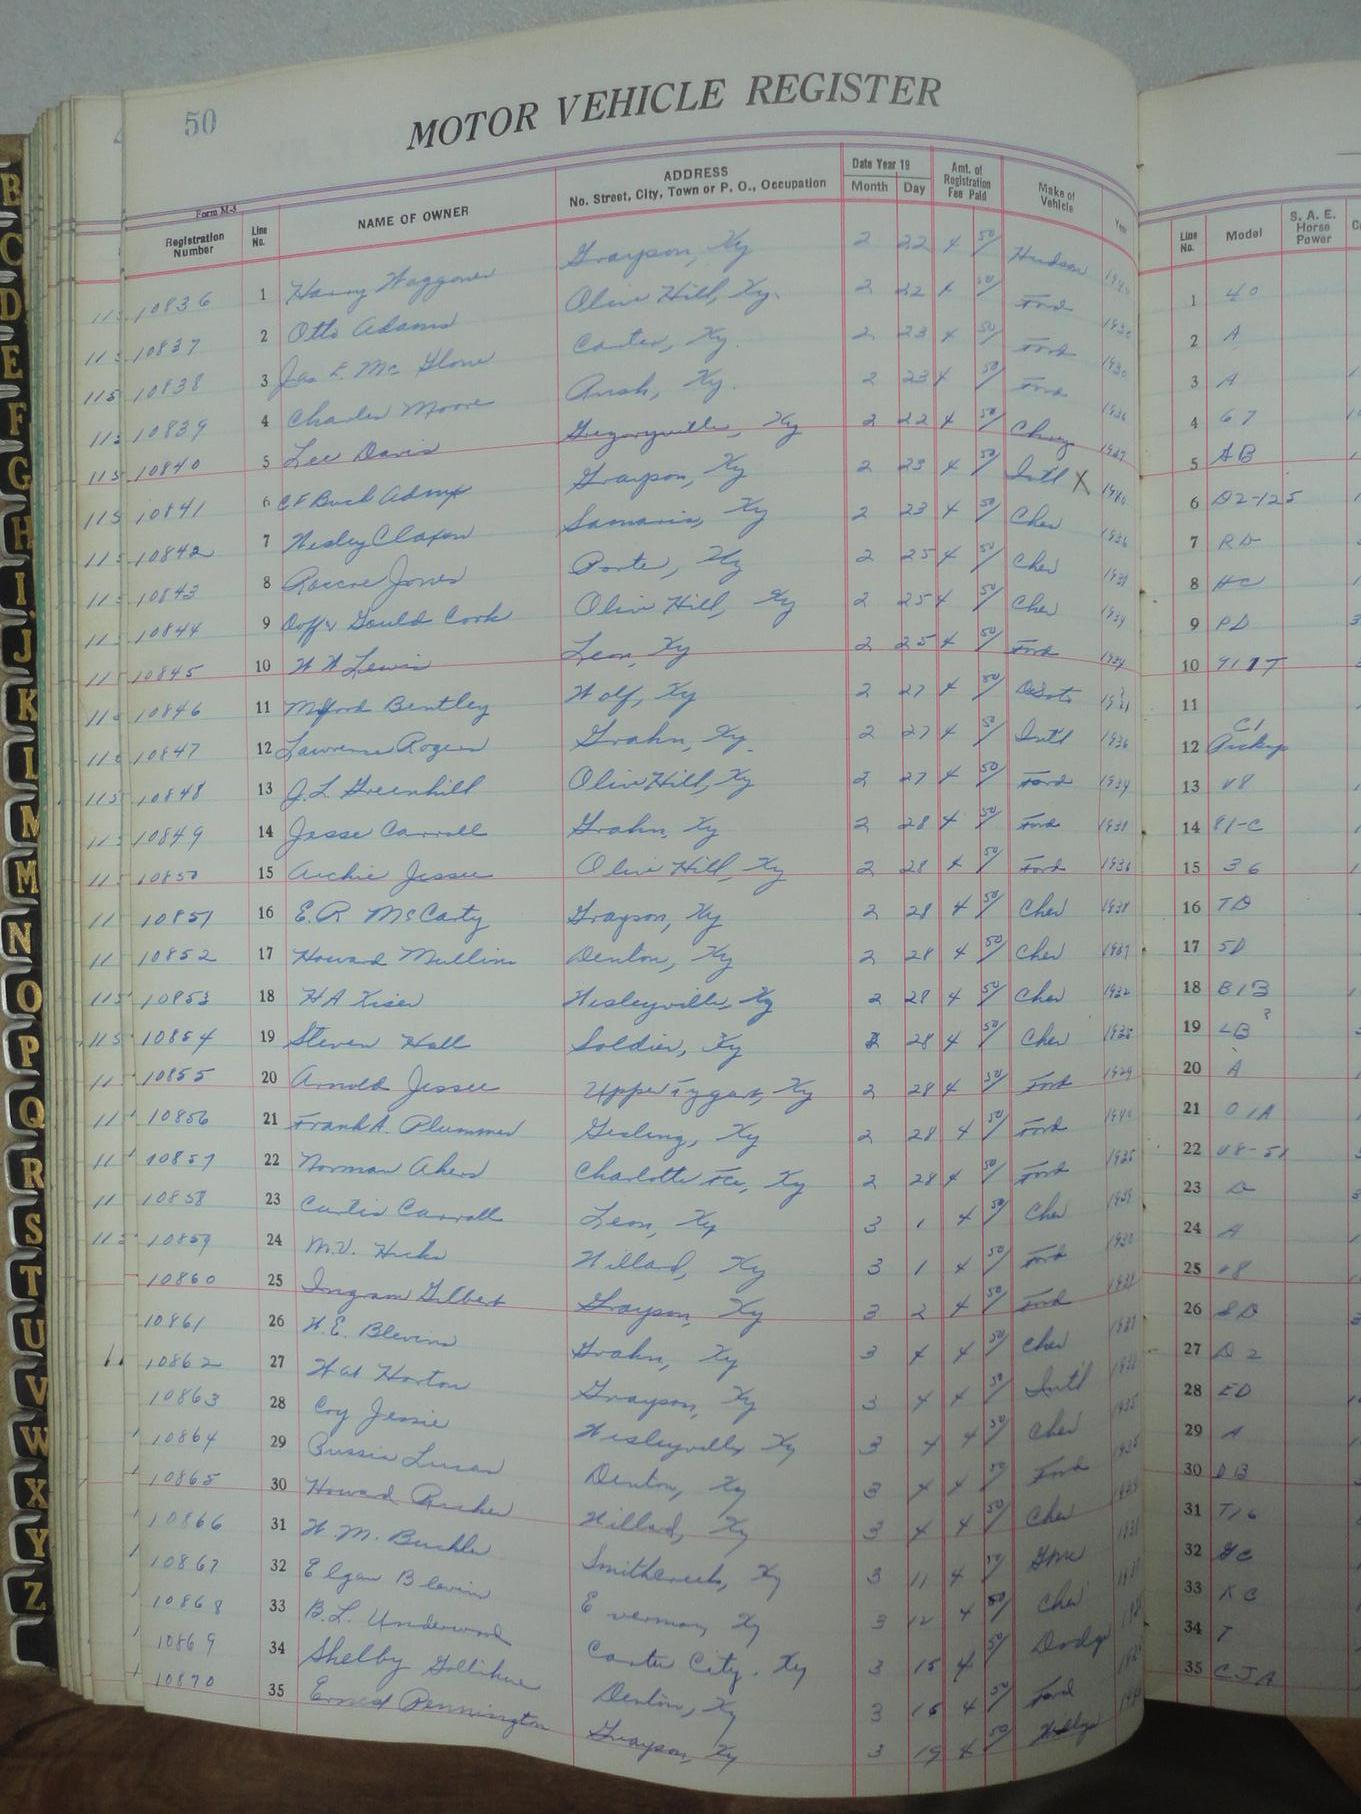 50
MOTOR VEHICLE REGISTER
Form M-3
Registration Number Line No. NAME OF OWNER ADDRESS No. Street, City, Town or P. O., Occupation Date Year 19 Month Day Amt. of Registration Fee Paid Make of Vehicle Year Line No. Model S. A. E. Horse Power
10836 1 Harry Waggoner Grayson, Ky 2 22 4 50 Hudson 1 40
10837 2 Otto Adams Olive Hill, Ky. 2 22 4 50 Ford 1930 2 A
10838 3 Jas E. Mc Glone Carter, Ky. 2 23 4 50 Ford 1930 3 A
10839 4 Charles Moore Rush, Ky. 2 23 4 50 Ford 1936 4 67
10840 5 Lee Davis Gregoryville, Ky 2 22 4 50 Chevy 5 AB
10841 6 Buck Grayson, Ky 2 23 4 50 Int'l X 1940 6 D2-125
10842 7 Wesley Claxon Samaria, Ky 2 23 4 50 Chev 1936 7 RD
10843 8 Roscoe Jones Porter, Ky 2 25 4 50 Chev 8 HC
10844 9 Gould Cook Olive Hill, Ky 2 25 4 50 Chev 1934 9 PD
10845 10 W W Lewis Leon, Ky 2 25 4 50 Ford 10
10846 11 Bentley Wolf, Ky 2 27 4 50 DeSoto 11
10847 12 Lawrence Rogers Grahn, Ky. 2 27 4 50 Int'l 1936 12 C1 Pickup
10848 13 J. L. Greenhill Olive Hill, Ky 2 27 4 50 Ford 1934 13 V8
10849 14 Jesse Carroll Grahn, Ky 2 28 4 50 Ford 1938 14 81-C
10850 15 Archie Jessee Olive Hill, Ky 2 28 4 50 Ford 1936 15 36
10851 16 E. R McCarty Grayson, Ky 2 28 4 50 Chev 1938 16 TD
10852 17 Howard Mullins Denton, Ky 2 28 4 50 Chev 1937 17 SD
10853 18 H A Kiser Wesleyville, Ky 2 28 4 50 Chev 1932 18 B13
10854 19 Steven Hall Soldier, Ky 2 28 4 50 Chev 19 LB ?
10855 20 Arnold Jessee Upper Tygart, Ky 2 28 4 50 Ford 1929 20 A
10856 21 Frank A. Plummer Gesling, Ky 2 28 4 50 Ford 1940 21 O1A
10857 22 Norman Akers Charlotte Fce, Ky 2 28 4 50 Ford 1935 22 V8-51
10858 23 Curtis Carroll Leon, Ky 3 1 4 50 Chev 23 D
10859 24 M.V. Hicks Willard, Ky 3 1 4 50 Ford 1930 24 A
10860 25 Ingram Gilbert Grayson, Ky 3 2 4 50 Ford 25 V8
10861 26 W. E. Blevins Grahn, Ky 3 4 4 50 Chev 1937 26 SD
10862 27 Horton Grayson, Ky 3 4 4 50 Int'l 27 D2
10863 28 Coy Jessie Wesleyville, Ky 3 4 4 50 Chev 28 ED
10864 29 Denton, Ky 3 4 4 50 Ford 29 A
10865 30 Howard Willard, Ky 3 4 4 50 Chev 30
10866 31 W. M. Buckler Smithcreek, Ky 3 11 4 50 Gmc 31 T16
10867 32 Elgan Blevins Ky 3 12 4 50 Chev 32 GC
10868 33 B.L. Underwood Carter City, Ky 3 15 4 50 Dodge 33 KC
10869 34 Shelby Gollihue Denton, Ky 3 15 4 50 Ford 34 T
10870 35 Ernest Pennington Grayson, Ky 3 19 4 50 Willys 35 CJA
B
C
D
E
F
G
H
I
J
K
L
M
M
N
O
P
Q
R
S
T
U
V
W
X
Y
Z